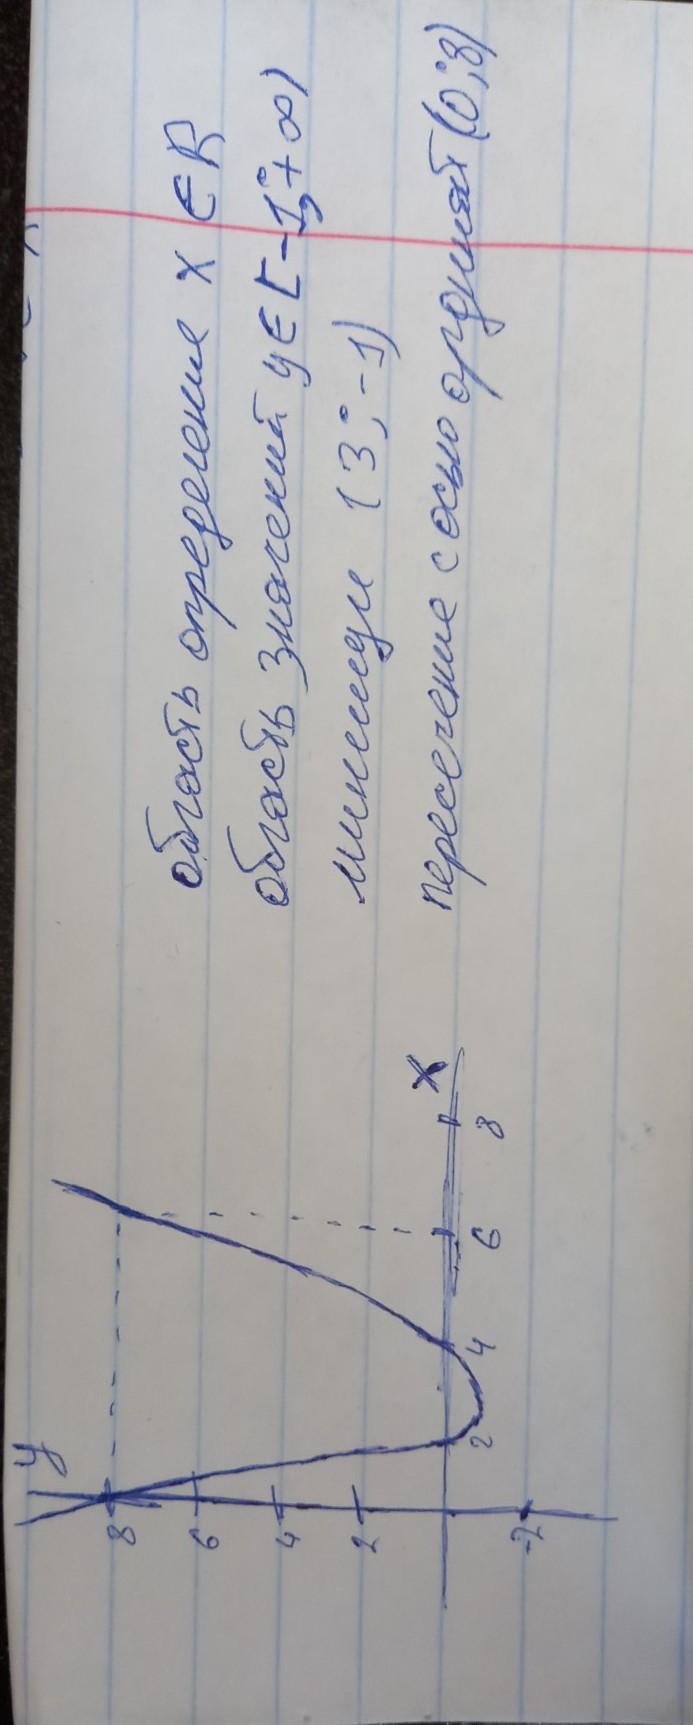 область определение x ∈ R
область значений y ∈ [-1; +∞)
миницум (3; -1)
пересечение с осью ординат (0; 8)
y
8
6
4
2
-2
2
4
6
8
x